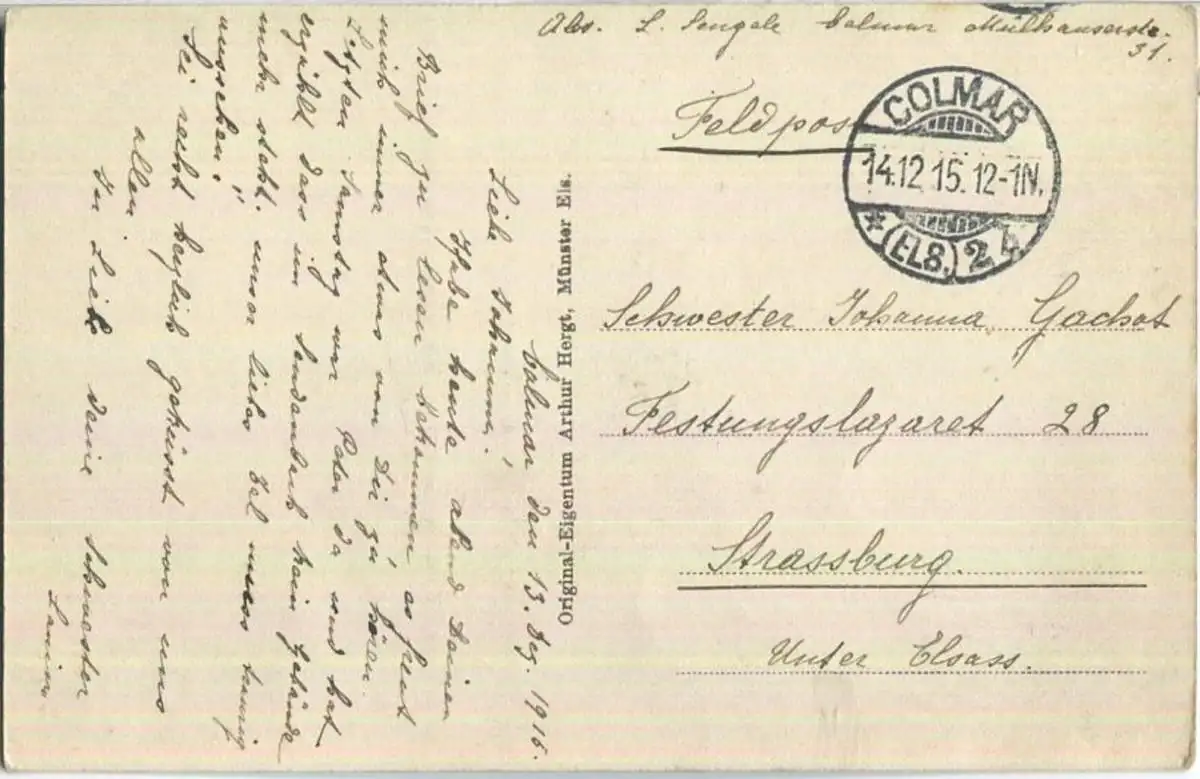 Abs. L. Sengele Colmar Mülhauserstr.
31.
Feldpost
COLMAR
14.12 15. 12-1N.
* (ELS.) 2 *
Schwester Johanna Gachot
Festungslazaret 28
Strassburg.
Unter Elsass.
Original-Eigentum Arthur Hergt, Münster Els.
Colmar den 13. Dez. 1915.
Liebe Johanna!
Habe heute abend Deinen
Brief zu lesen bekommen es freut
mich immer etwas von Dir zu hören.
Letzten Samstag war Peter da und hat
erzählt dass im Sondernach kein Gebäude
mehr steht. unser liebes Tal muss traurig
aussehen!
Sei recht herzlich gegrüsst von uns
allen.
In Liebe deine Schwester